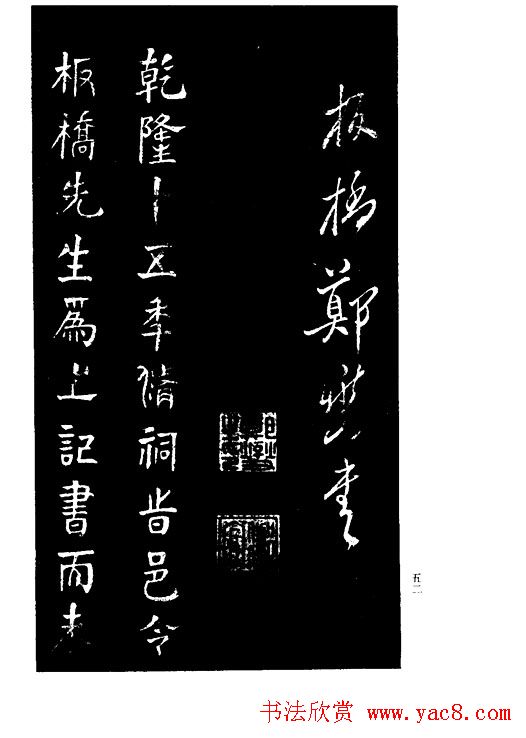 板橋鄭燮書
乾隆十五年脩祠時邑令
板橋先生為之記書而未
五二
书法欣赏 www.yac8.com